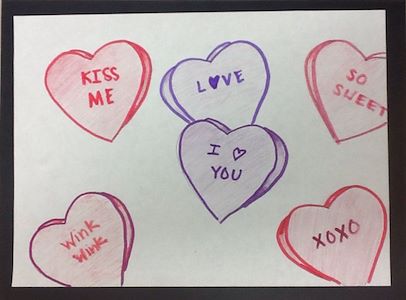 KISS
ME
L♥VE
SO
SWEET
I ♡
YOU
Wink
Wink
XOXO